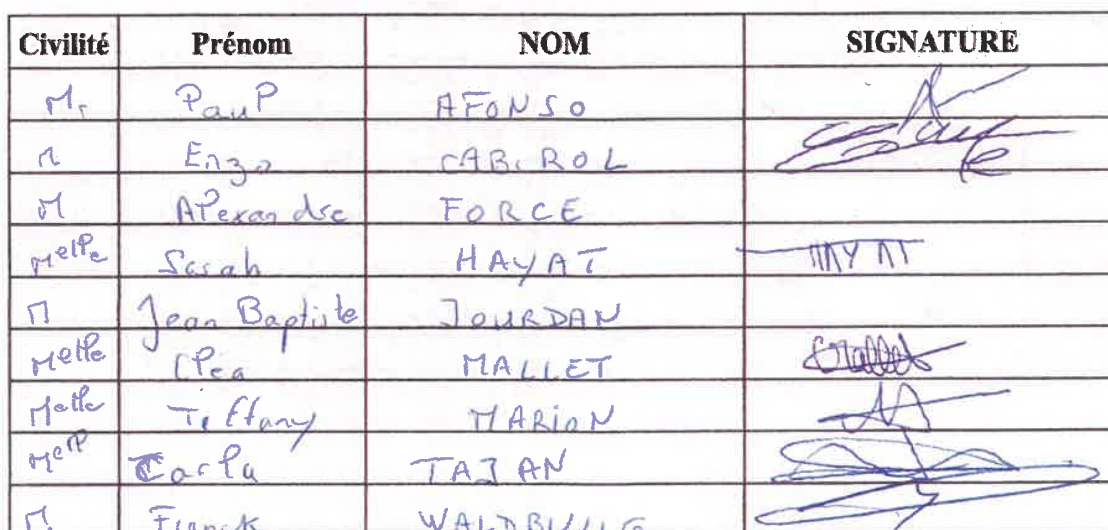 Civilité Prénom NOM SIGNATURE
Mr Paul AFONSO
M Enzo CABIROL
M Alexandre FORCE
Melle Sarah HAYAT HAYAT
M Jean Baptiste JOURDAN
Melle Cléa MALLET Mallet
Melle Tiffany MARION
Melle Carla TAJAN
M. Franck